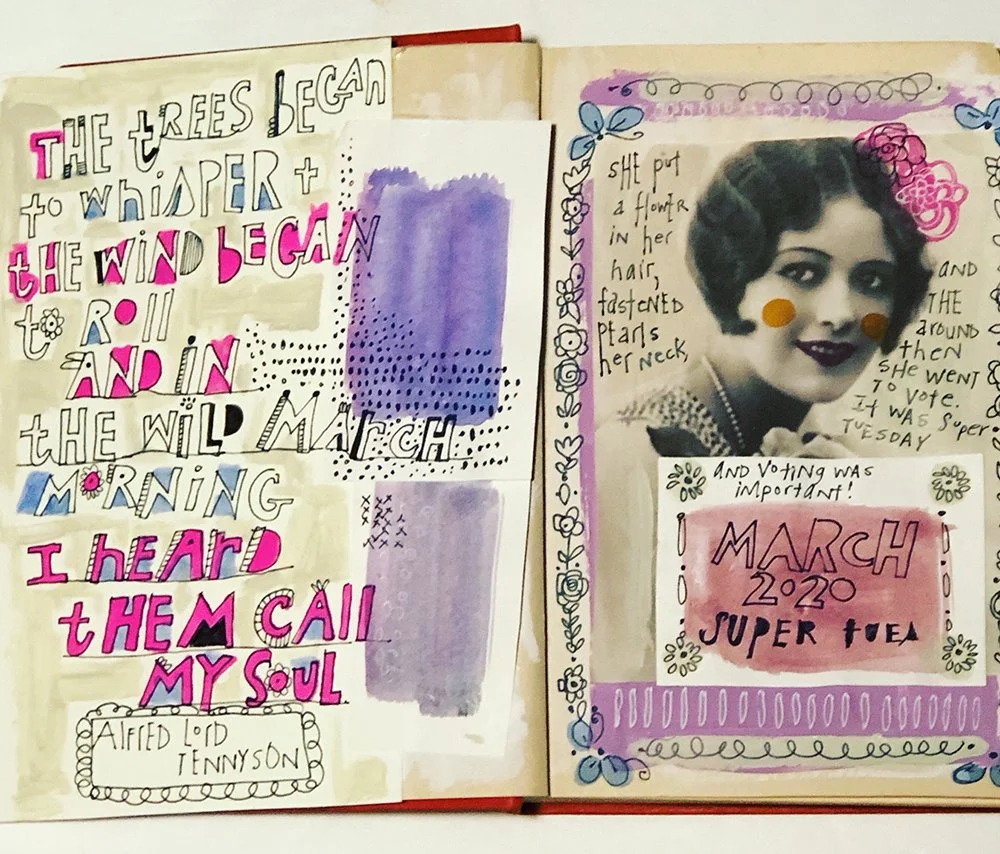 THE tREES bEGAn
to whiSPER +
tHE WIND bEGAN
to Roll
AND iN
tHE WilD MARCH
MORNiNG
I hEArD
tHEM CAll
MY SoUL
AlfrED LorD
TENNYSON
SHE put
a flowER
in her
hair,
fastENED
PEarls
her NECK,
AND
THE
around
then
SHE WENT
TO VOTE.
It WAS SupER
TUESDAY
AND VOTiNG WAS
impORTANT!
MARCH
2020
SUPER tUES